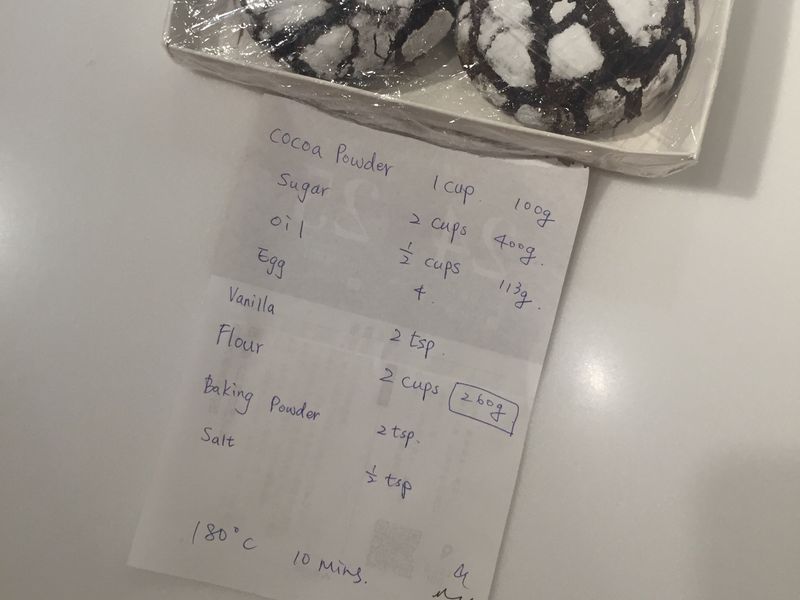 Cocoa Powder 1 cup. 100g
Sugar 2 cups 400g.
Oil ½ cups 113g.
Egg 4.
Vanilla 2 tsp.
Flour 2 cups 260g
Baking Powder 2 tsp.
Salt ½ tsp
180°C 10 Mins.